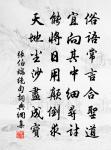 俗語常言合聖道
宜向其中細尋討
能將日用顛倒求
天地塵沙盡成寶
張伯端絕句詞典網